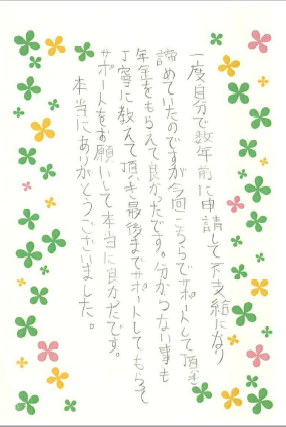 一度自分で数年前に申請して不支給になり
諦めていたのですが今回こちらでサポートして頂き
年金をもらえて良かったです。分からない事も
丁寧に教えて頂き最後までサポートしてもらえて
サポートをお願いして本当に良かったです。
本当にありがとうございました。